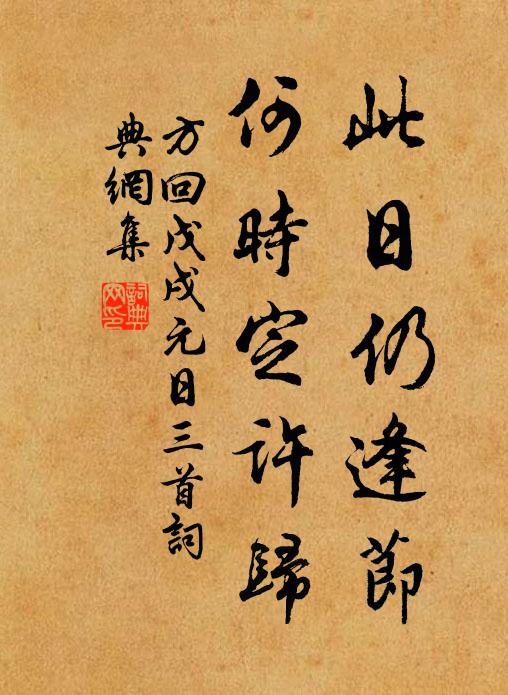 此日仍逢節
何時定許歸
方回戊戌元日三首詞
典網集
詞典網印